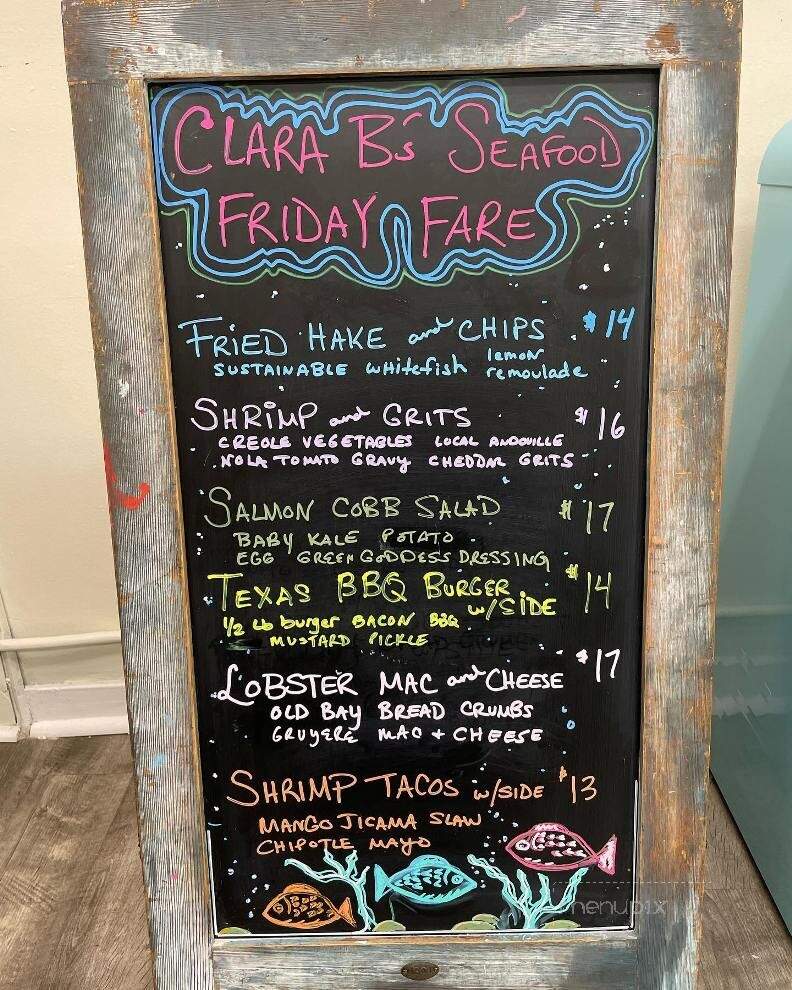 CLARA B's SEAFOOD
FRIDAY FARE
FRIED HAKE and CHIPS $14
SUSTAINABLE whitefish lemon remoulade
SHRIMP and GRITS $16
CREOLE VEGETABLES LOCAL ANDOUILLE
NOLA TOMATO GRAVY CHEDDAR GRITS
SALMON COBB SALAD $17
BABY KALE POTATO
EGG GREEN GODDESS DRESSING
TEXAS BBQ BURGER w/SIDE $14
1/2 Lb burger BACON BBQ
MUSTARD PICKLE
LOBSTER MAC and CHEESE $17
OLD BAY BREAD CRUMBS
GRUYERE MAC + CHEESE
SHRIMP TACOS w/SIDE $13
MANGO JICAMA SLAW
CHIPOTLE MAYO
menupix